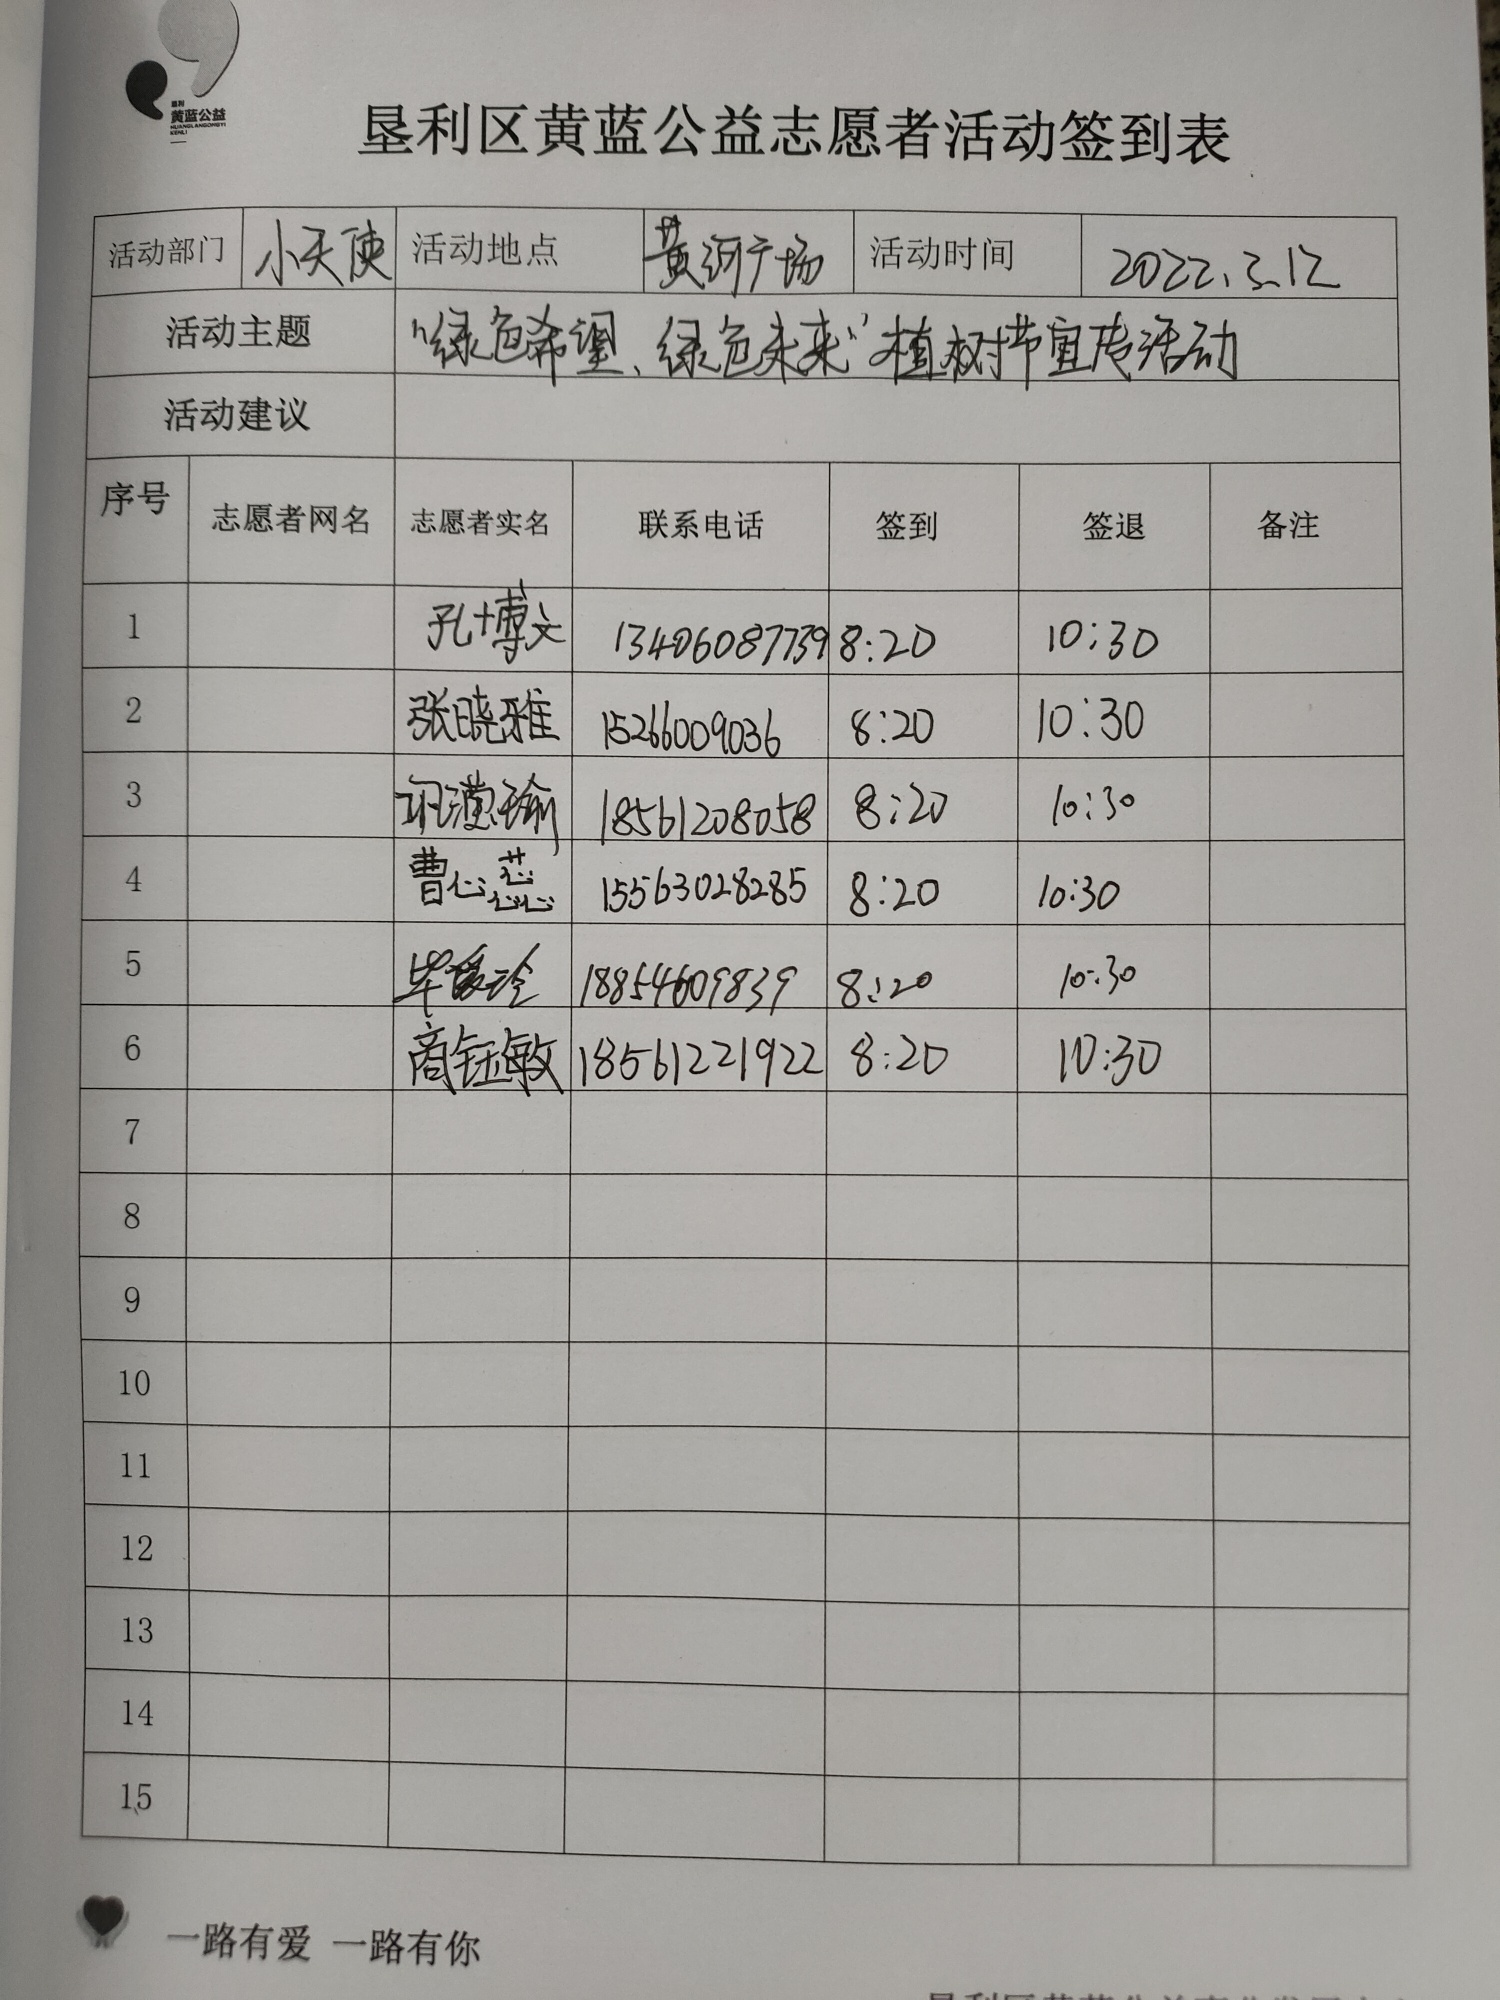 垦利
黄蓝公益
HUANGLANGONGYI
KENLI
垦利区黄蓝公益志愿者活动签到表
活动部门 小天使 活动地点 黄河广场 活动时间 2022.3.12
活动主题 "绿色希望、绿色未来"植树节宣传活动
活动建议
序号 志愿者网名 志愿者实名 联系电话 签到 签退 备注
1 孔博文 13406087739 8:20 10:30
2 张晓雅 15266009036 8:20 10:30
3 18561208058 8:20 10:30
4 曹心蕊 15563028285 8:20 10:30
5 18854609839 8:20 10:30
6 商钰敏 18561221922 8:20 10:30
7
8
9
10
11
12
13
14
15
一路有爱 一路有你